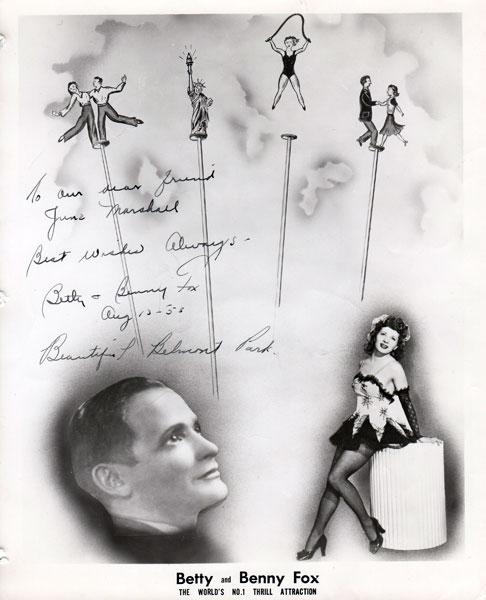 To our dear friend
June Marshall
Best Wishes Always -
Betty & Benny Fox
Aug 13-53
Beautiful Belmont Park.
Betty and Benny Fox
THE WORLD'S NO.1 THRILL ATTRACTION